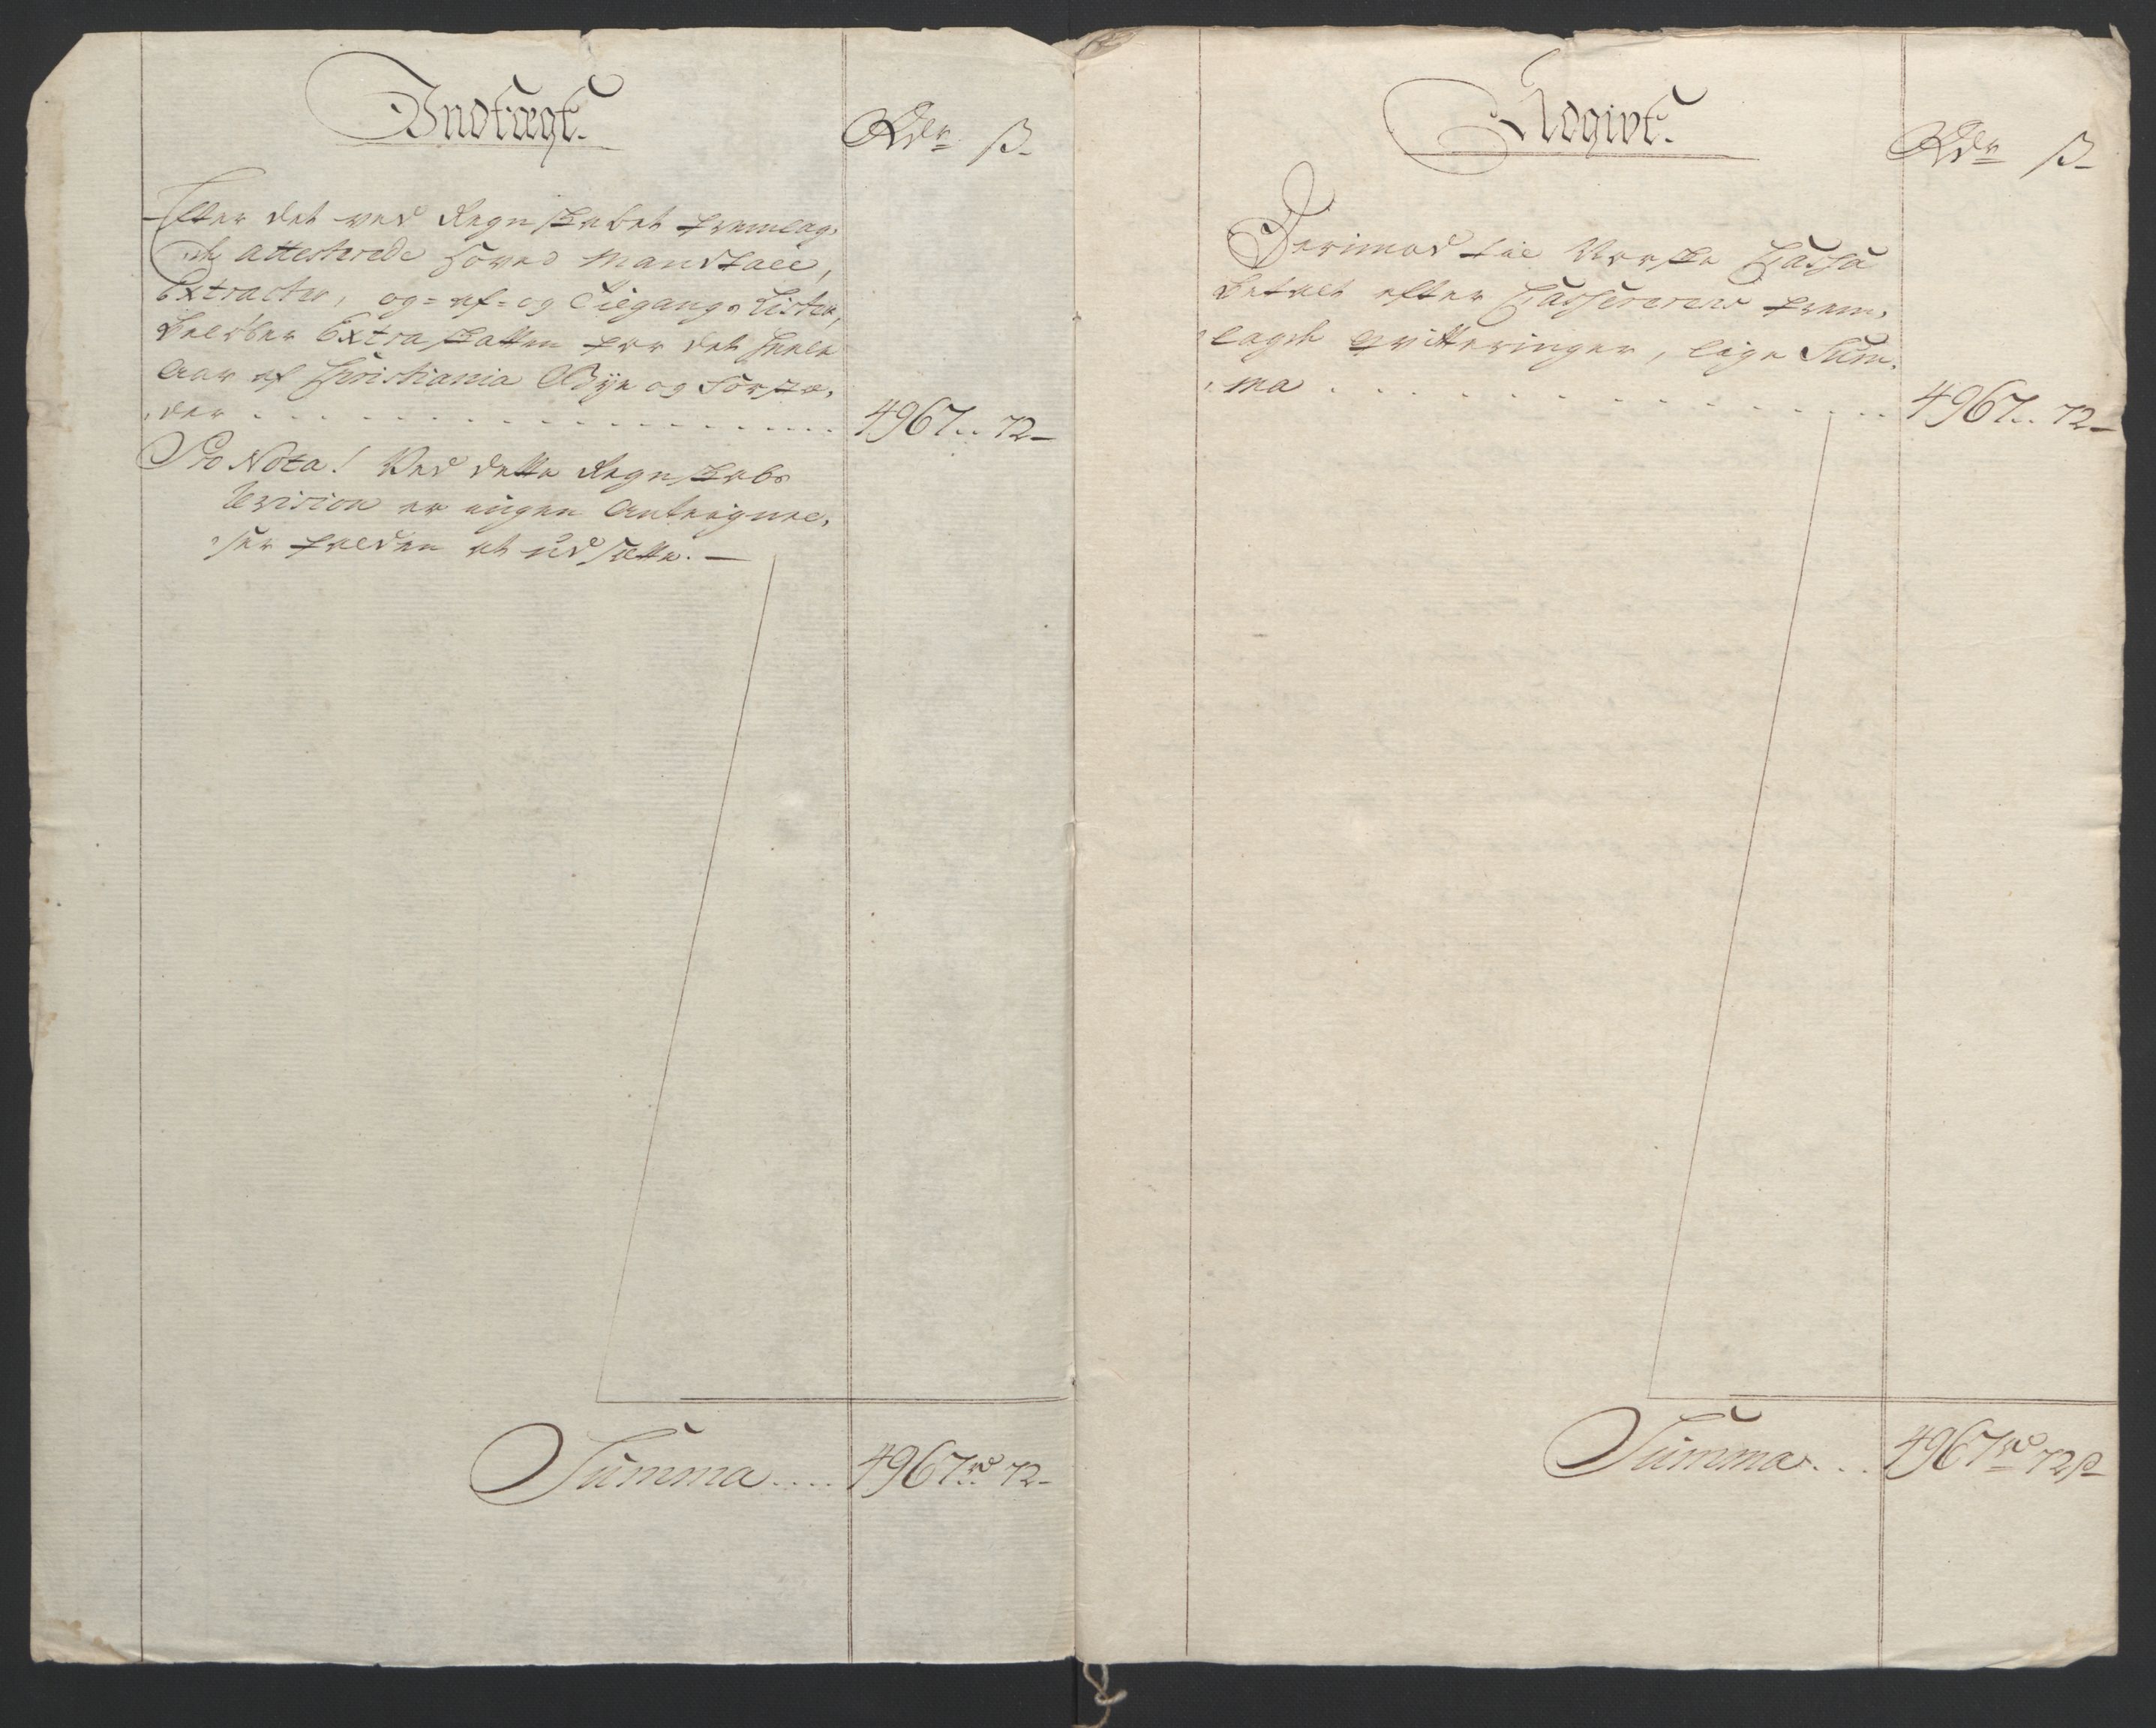 Indtægt.
Rdr ß
Efter det ved Regnskabet fremlag,
de attesterede Hoved Mandtall,
Extracter, og = af = og Tilgangs Lister,
beløber Extraskatten for det heele
Aar af Christiania Bÿe og Forstæ,
der . . . 4967.. 72
Pro Nota! Ved dette Regnskabs
Revision er ingen Antegnel,
ser falden at udsætte. —
Summa .... 4967rd 72
Udgivt.
Rdr ß
Derimod til Norske Cassa
betalt efter Casserernes frem,
lagde qvitteringer, lige Sum,
ma . . . 4967.. 72
Summa . . . 4967rd 72ß